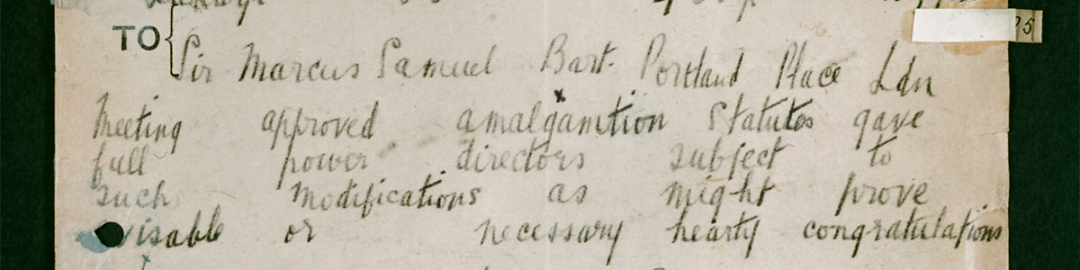 TO { Sir Marcus Samuel Bart. Portland Place Ldn
Meeting approved amalgamtion Statutes gave
full power directors subject to
such modifications as might prove
visable or necessary hearty congratulations